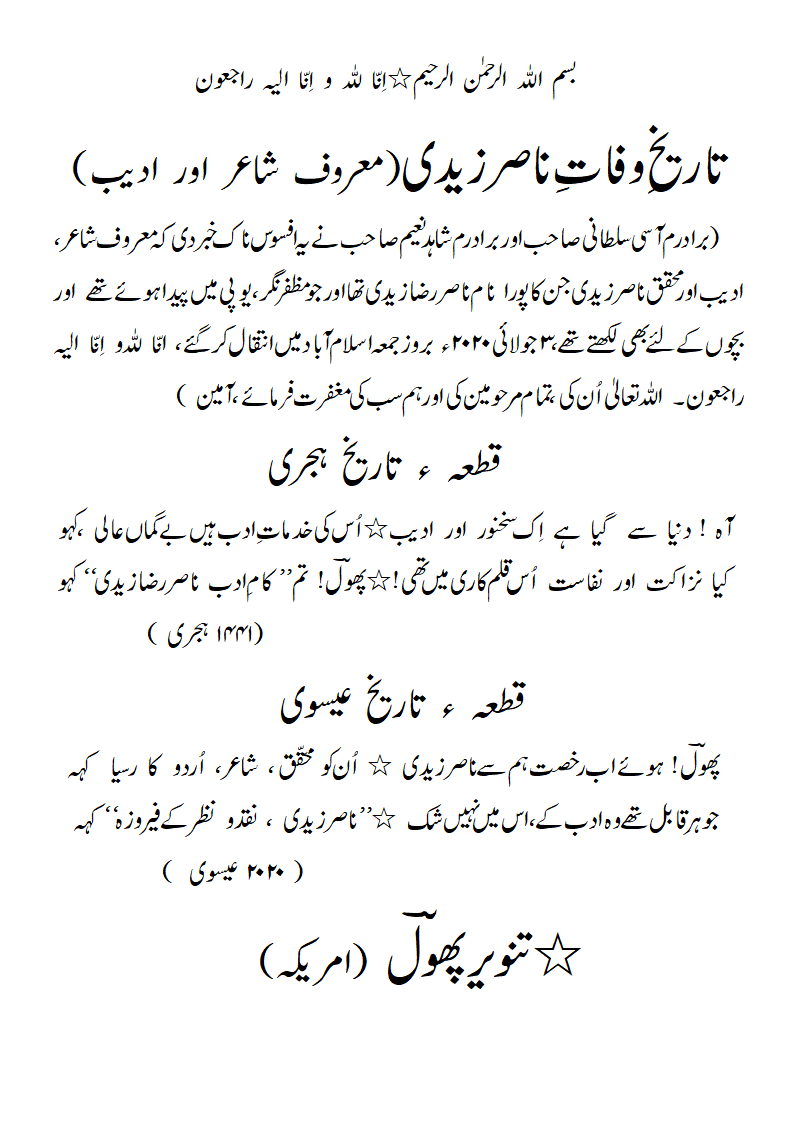 بسم اللہ الرحمٰن الرحیم☆اِنّا للہ و اِنّا الیہ راجعون
تاریخِ وفاتِ ناصر زیدی(معروف شاعر اور ادیب)
(برادرم آسی سلطانی صاحب اور برادرم شاہد نعیم صاحب نے یہ افسوس ناک خبر دی کہ معروف شاعر،
ادیب اور محقق ناصر زیدی جن کا پورا نام ناصر رضا زیدی تھا اور جو مظفر نگر، یو پی میں پیدا ہوئے تھے اور
بچوں کے لئے بھی لکھتے تھے، ۳ جولائی ۲۰۲۰ء بروز جمعہ اسلام آباد میں انتقال کر گئے، انّا للہ و اِنّا الیہ
راجعون۔ اللہ تعالیٰ اُن کی ،تمام مرحومین کی اور ہم سب کی مغفرت فرمائے ،آمین )
قطعہ ء تاریخ ہجری
آہ ! دنیا سے گیا ہے اِک سخنور اور ادیب☆اُس کی خدماتِ ادب ہیں بے گماں عالی ،کہو
کیا نزاکت اور نفاست اُس قلم کاری میں تھی!☆پھولؔ! تم’’ کامِ ادب ناصر رضا زیدی‘‘ کہو
(۱۴۴۱ ہجری )
قطعہ ء تاریخ عیسوی
پھولؔ! ہوئے اب رخصت ہم سے ناصر زیدی ☆ اُن کو محقّق ، شاعر، اُردو کا رسیا کہہ
جوہر قابل تھے وہ ادب کے، اس میں نہیں شک ☆’’ ناصر زیدی ، نقدو نظر کے فیروزہ‘‘ کہہ
( ۲۰۲۰ عیسوی )
☆تنویر پھولؔ (امریکہ)